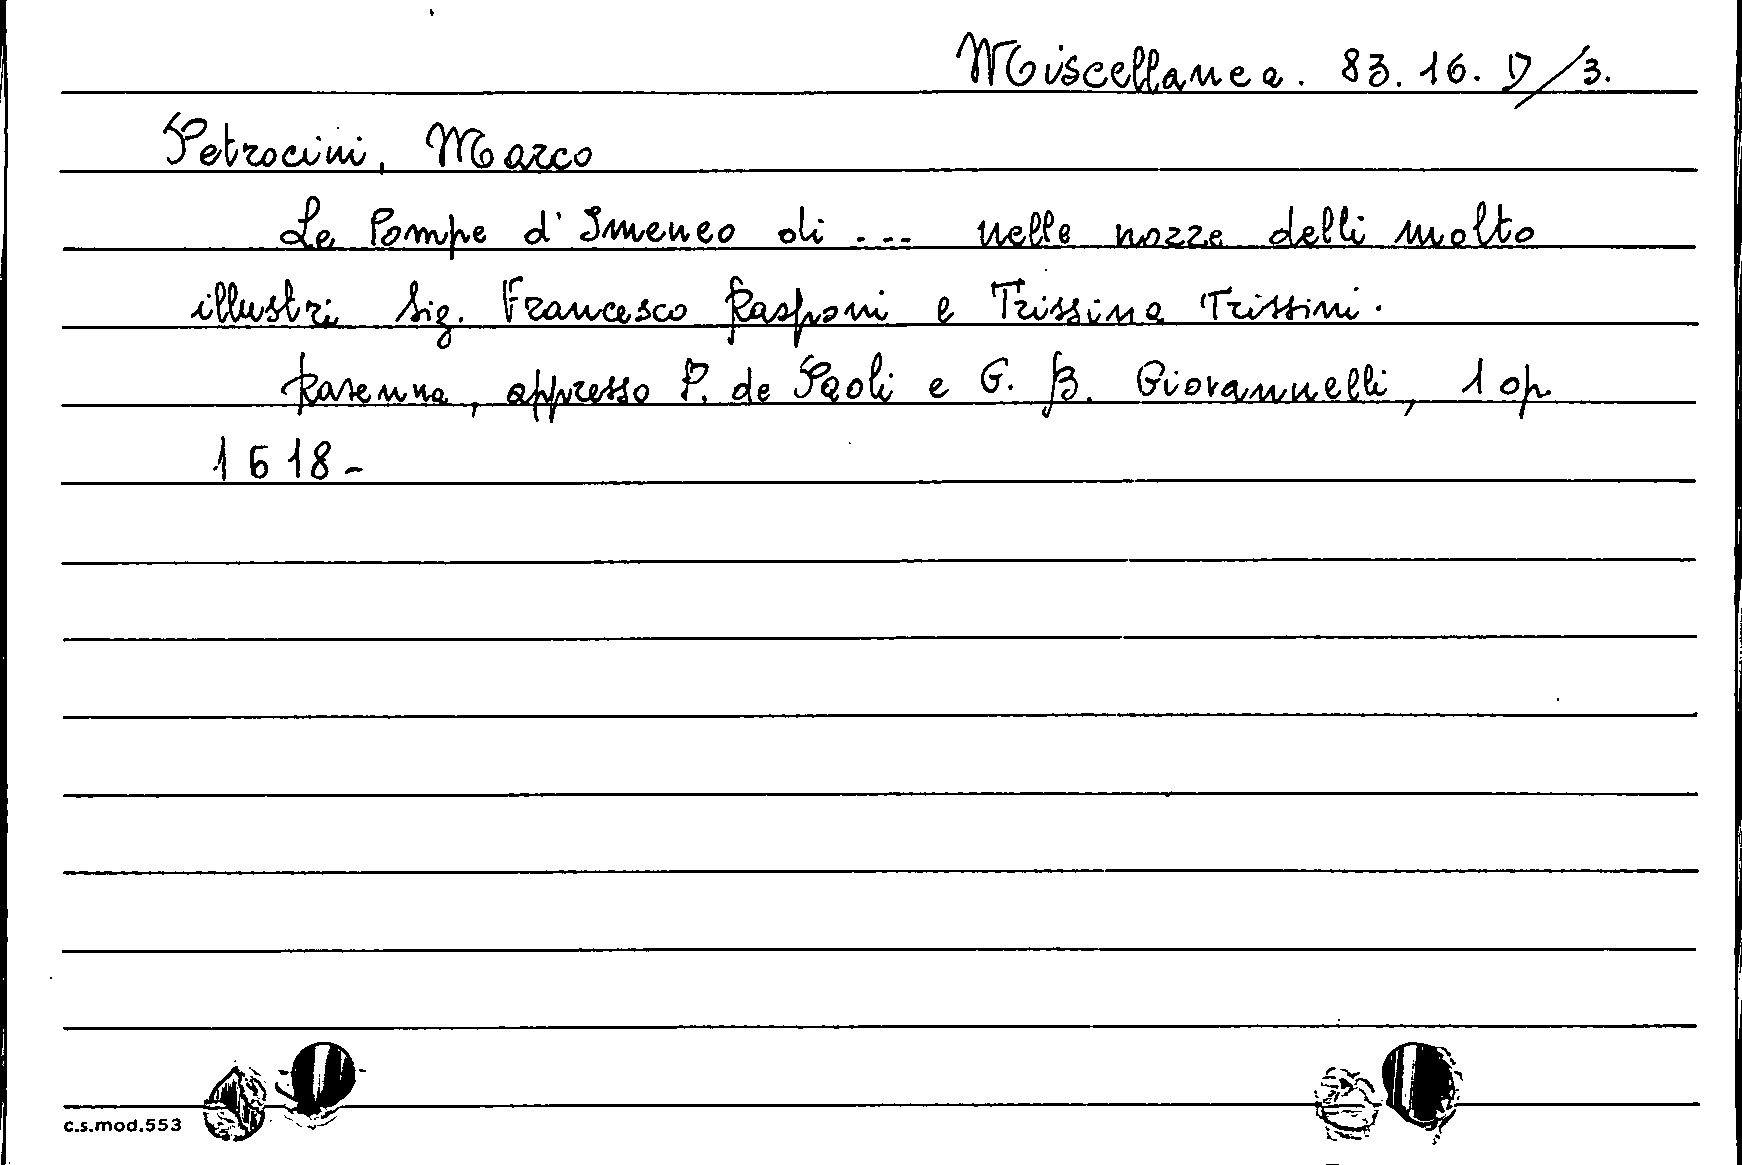 Miscellanea. 83. 16. D/3.
Petrocini, Marco
Le Pompe d'Imeneo di .... nelle nozze delli molto
illustri Sig. Francesco Rasponi e Trissina Trissini.
Ravenna, appresso P. de Paoli e G. B. Giovannelli, 1 op.
1618-
c.s.mod.553